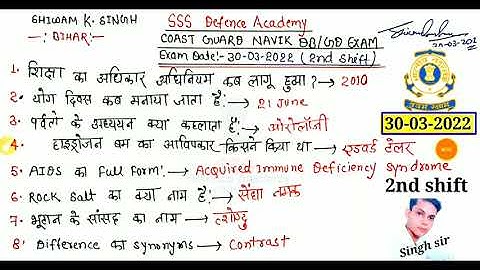 SHIWAM K. SINGH
—: BIHAR:—
SSS Defence Academy
COAST GUARD NAVIK DB/GD EXAM
Exam Date:- 30-03-2022 (2nd Shift)
1. शिक्षा का अधिकार अधिनियम कब लागू हुआ? → 2010
2. योग दिवस कब मनाया जाता है:→ 21 June
3. पर्वतो के अध्ययन क्या कहलाता है:→ ओरोलॉजी
4. हाइड्रोजन बम का आविष्कार किसने किया था → एडवर्ड टेलर
5. AIDS का Full Form:→ Acquired Immune Deficiency Syndrome
6. ROCK Salt का क्या नाम है:→ सेंधा नमक
7. भूटान के सांसद का नाम → त्शोग्दु
8. Difference का synonyms → Contrast
30-03-2022
2nd shift
Singh sir